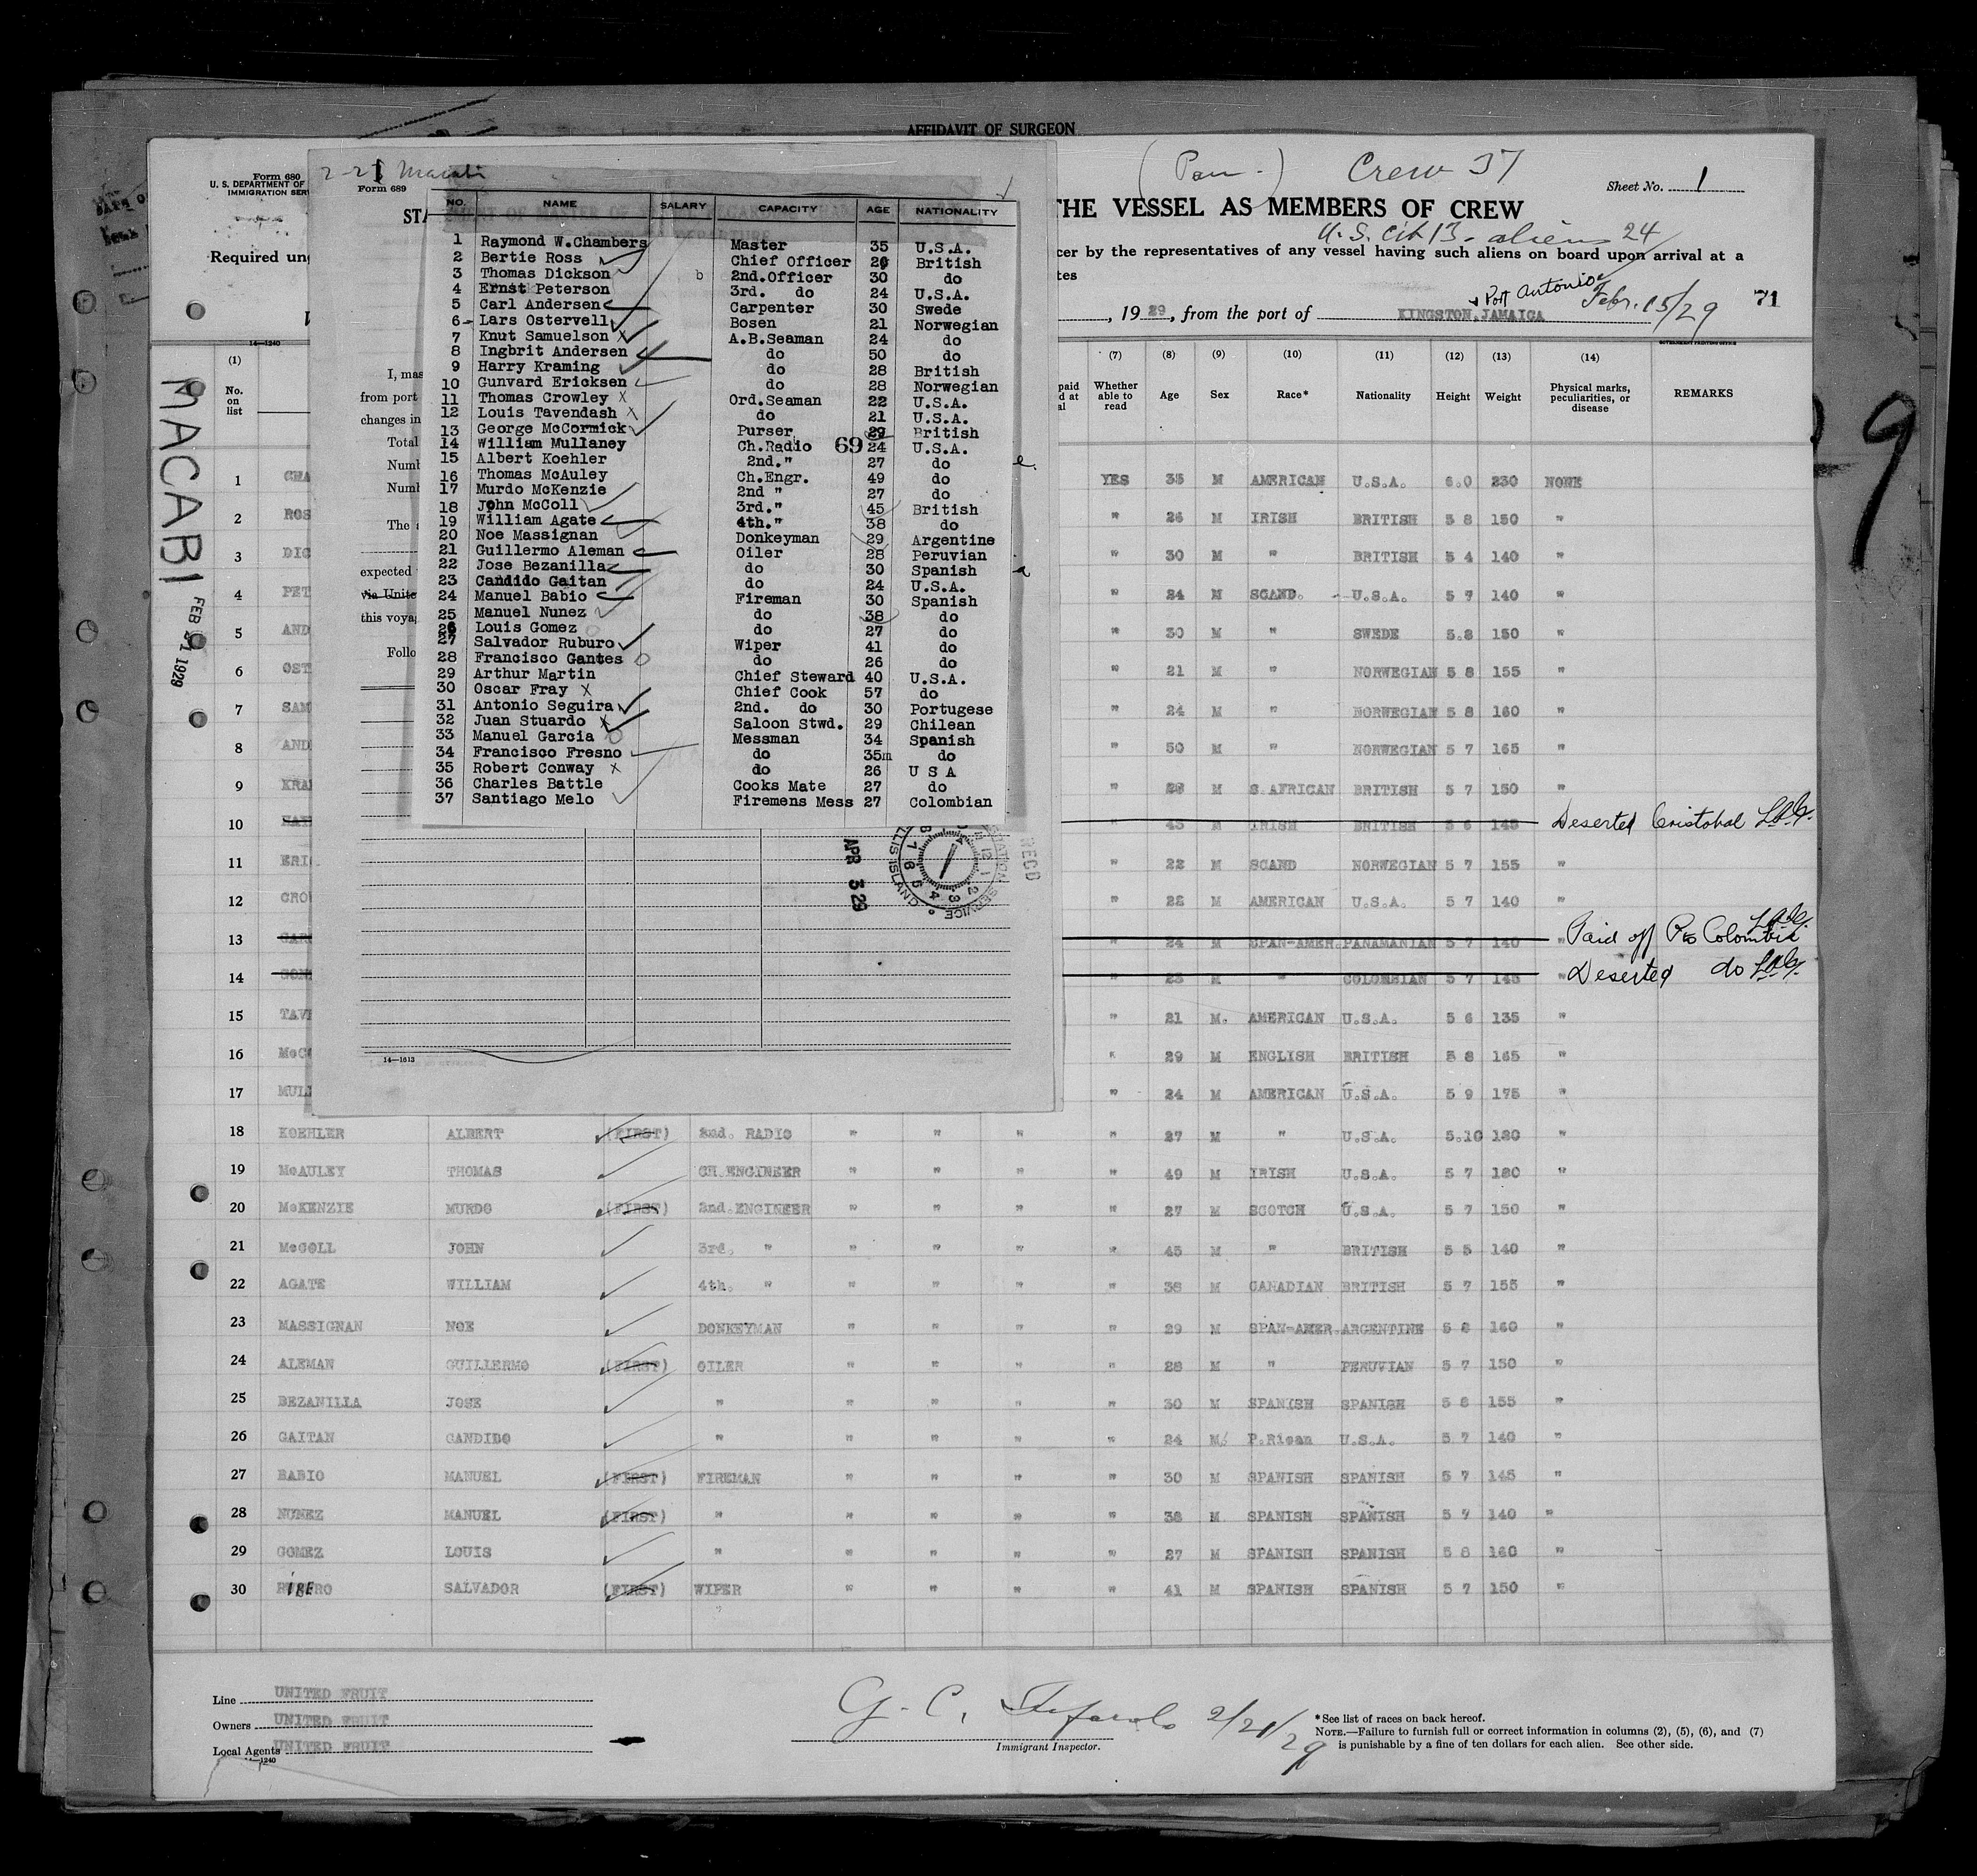 AFFIDAVIT OF SURGEON
Form 680
U. S. DEPARTMENT OF
IMMIGRATION SER
Required un
(Pan-) Crew 37
Sheet No. 1
THE VESSEL AS MEMBERS OF CREW
U.S. cit 13 - aliens 24
cer by the representatives of any vessel having such aliens on board upon arrival at a
tes
, 19 29, from the port of KINGSTON, JAMAICA
+ Port Antonio
Febr. 15/29
71
14—1240
GOVERNMENT PRINTING OFFICE
MACABI
FEB 21 1929
9
2-21 Macabi
Form 689
STA
I, mas
from port
changes in
Total
Numb
Numb
The s
expected
via Unite
this voya
Follo
NO. NAME SALARY CAPACITY AGE NATIONALITY
1 Raymond W.Chambers Master 35 U.S.A.
2 Bertie Ross Chief Officer 26 British
3 Thomas Dickson b 2nd.Officer 30 do
4 Ernst Peterson 3rd. do 24 U.S.A.
5 Carl Andersen Carpenter 30 Swede
6 Lars Ostervell Bosen 21 Norwegian
7 Knut Samuelson X A.B.Seaman 24 do
8 Ingbrit Andersen do 50 do
9 Harry Kraming do 28 British
10 Gunvard Ericksen do 28 Norwegian
11 Thomas Crowley X Ord.Seaman 22 U.S.A.
12 Louis Tavendash X do 21 U.S.A.
13 George McCormick Purser 29 British
14 William Mullaney Ch.Radio 69 24 U.S.A.
15 Albert Koehler 2nd." 27 do
16 Thomas McAuley Ch.Engr. 49 do
17 Murdo McKenzie 2nd " 27 do
18 John McColl 3rd." 45 British
19 William Agate 4th." 38 do
20 Noe Massignan Donkeyman 29 Argentine
21 Guillermo Aleman Oiler 28 Peruvian
22 Jose Bezanilla do 30 Spanish
23 Candido Gaitan do 24 U.S.A.
24 Manuel Babio Fireman 30 Spanish
25 Manuel Nunez do 38 do
26 Louis Gomez do 27 do
27 Salvador Ruburo Wiper 41 do
28 Francisco Gantes do 26 do
29 Arthur Martin Chief Steward 40 U.S.A.
30 Oscar Fray X Chief Cook 57 do
31 Antonio Seguira 2nd. do 30 Portugese
32 Juan Stuardo X Saloon Stwd. 29 Chilean
33 Manuel Garcia Messman 34 Spanish
34 Francisco Fresno do 35m do
35 Robert Conway X do 26 U S A
36 Charles Battle Cooks Mate 27 do
37 Santiago Melo Firemens Mess 27 Colombian
APR 3 29
RECD
ELLIS ISLAND
SERVICE
14—1613
(1) (7) (8) (9) (10) (11) (12) (13) (14)
No. on list
Whether able to read Age Sex Race* Nationality Height Weight Physical marks, peculiarities, or disease REMARKS
1 CHA YES 35 M AMERICAN U.S.A. 6.0 230 NONE
2 ROS " 26 M IRISH BRITISH 5 8 150 "
3 DIC " 30 M " BRITISH 5 4 140 "
4 PET " 24 M SCAND. U.S.A. 5 7 140 "
5 AND " 30 M " SWEDE 5.8 150 "
6 OST " 21 M " NORWEGIAN 5 8 155 "
7 SAM " 24 M " NORWEGIAN 5 8 160 "
8 AND " 50 M " NORWEGIAN 5 7 165 "
9 KRA " 28 M S.AFRICAN BRITISH 5 7 150 "
10 " 45 M IRISH BRITISH 5 6 145 Deserted Cristobal
11 ERI " 22 M SCAND NORWEGIAN 5 7 155 "
12 CRO " 22 M AMERICAN U.S.A. 5 7 140 "
13 " 24 M SPAN-AMER. PANAMANIAN 5 7 140 " Paid off Pto Colombia
14 " 23 M " COLOMBIAN 5 7 145 " Deserted do
15 TAV " 21 M. AMERICAN U.S.A. 5 6 135 "
16 McC " 29 M ENGLISH BRITISH 5 8 165 "
17 MUL " 24 M AMERICAN U.S.A. 5 9 175 "
18 KOEHLER ALBERT (FIRST) 2nd. RADIO " " " " 27 M " U.S.A. 5.10 180 "
19 McAULEY THOMAS CH.ENGINEER " " " " 49 M IRISH U.S.A. 5 7 180 "
20 McKENZIE MURDO (FIRST) 2nd.ENGINEER " " " " 27 M SCOTCH U.S.A. 5 7 150 "
21 McCOLL JOHN 3rd. " " " " " 45 M " BRITISH 5 5 140 "
22 AGATE WILLIAM 4th. " " " " " 38 M CANADIAN BRITISH 5 7 155 "
23 MASSIGNAN NOE DONKEYMAN " " " " 29 M SPAN-AMER. ARGENTINE 5 8 160 "
24 ALEMAN GUILLERMO (FIRST) OILER " " " " 28 M " PERUVIAN 5 7 150 "
25 BEZANILLA JOSE " " " " " 30 M SPANISH SPANISH 5 8 155 "
26 GAITAN CANDIDO " " " " " 24 M P.Rican U.S.A. 5 7 140 "
27 BABIO MANUEL (FIRST) FIREMAN " " " " 30 M SPANISH SPANISH 5 7 145 "
28 NUNEZ MANUEL (FIRST) " " " " " 38 M SPANISH SPANISH 5 7 140 "
29 GOMEZ LOUIS " " " " " 27 M SPANISH SPANISH 5 8 160 "
30 RIBERO SALVADOR (FIRST) WIPER " " " " 41 M SPANISH SPANISH 5 7 150 "
Line UNITED FRUIT
Owners UNITED FRUIT
Local Agents UNITED FRUIT
14—1240
G. C. 2/21/29
Immigrant Inspector.
*See list of races on back hereof.
NOTE.—Failure to furnish full or correct information in columns (2), (5), (6), and (7)
is punishable by a fine of ten dollars for each alien. See other side.